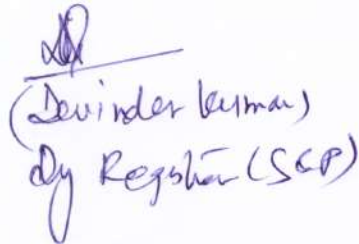 (Devinder Kumar)
Dy Registrar (SCP)